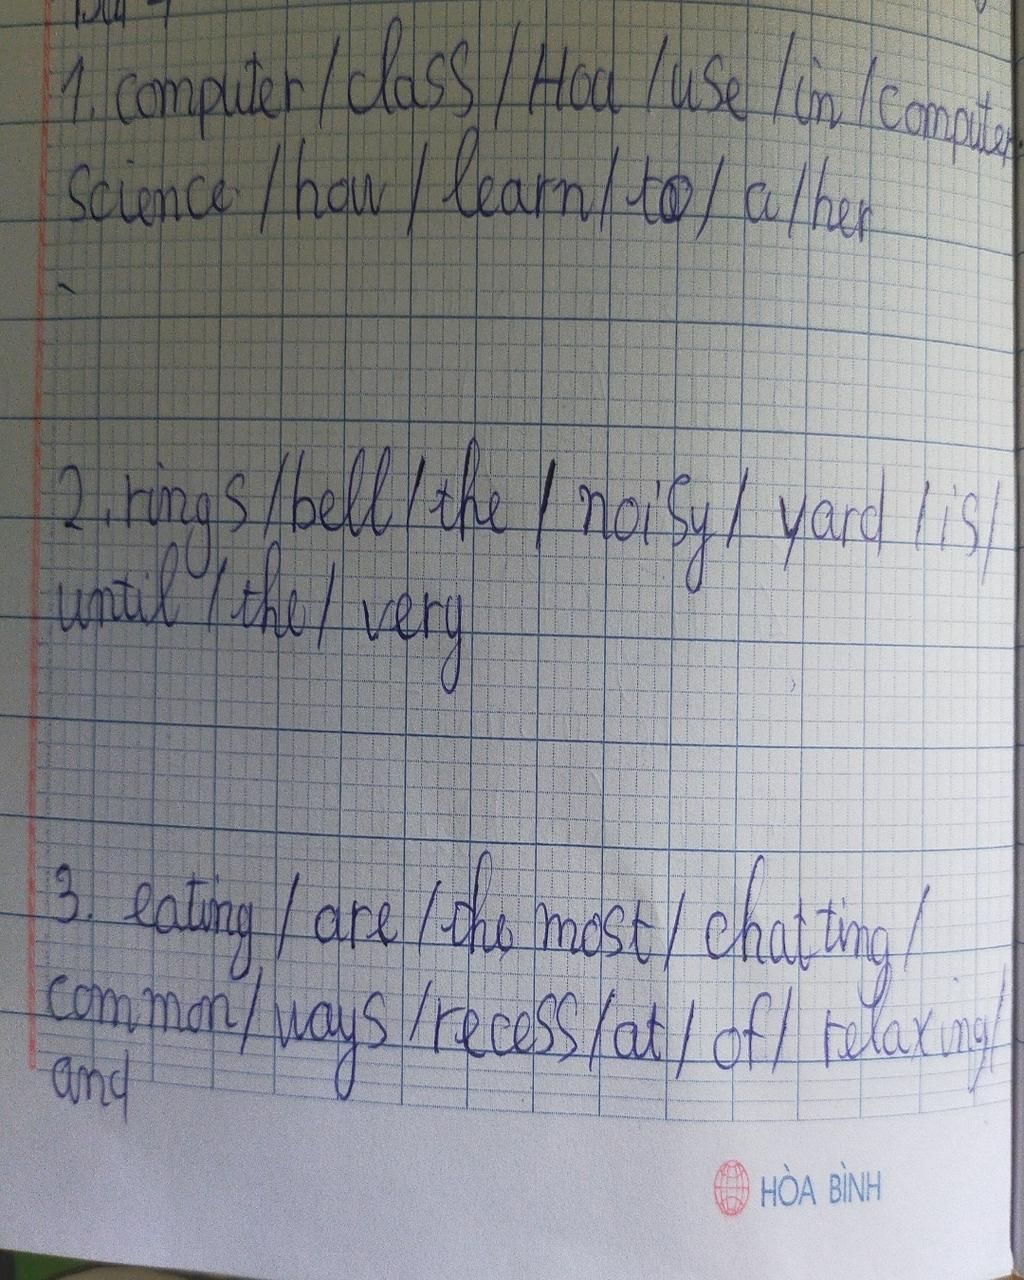 1. computer / class / Hoa / use / in / computer
science / how / learn / to / a / her
2. rings / bell / the / noisy / yard / is /
until / the / very
3. eating / are / the most / chatting /
common / ways / recess / at / of / relaxing /
and
HÒA BÌNH